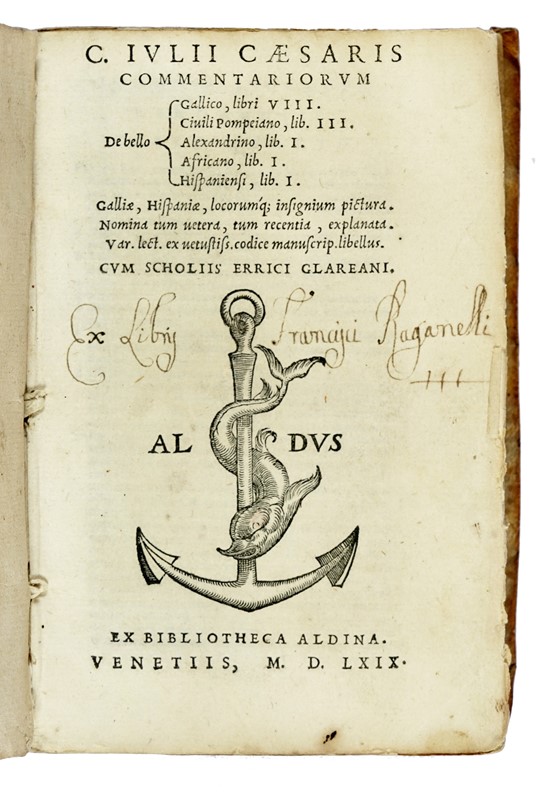 C. IVLII CÆSARIS
COMMENTARIORVM
De bello
Gallico, libri VIII.
Ciuili Pompeiano, lib. III.
Alexandrino, lib. I.
Africano, lib. I.
Hispaniensi, lib. I.
Galliæ, Hispaniæ, locorumq́; insignium pictura.
Nomina tum uetera, tum recentia, explanata.
Var. lect. ex uetustiss. codice manuscrip. libellus.
CVM SCHOLIIS ERRICI GLAREANI.
Ex Librij Francisci Raganelli
AL DVS
EX BIBLIOTHECA ALDINA.
VENETIIS, M. D. LXIX.